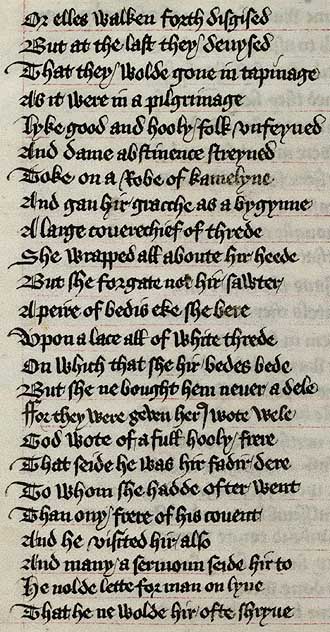 Or elles walken forth disgised
But at the last they devysed
That they wolde gone in tapinage
As it were in a pilgrimage
Lyke good and hooly folk vnfeyned
And dame abstinence streyned
Toke on a Robe of kamelyne
And gan hir gracche as a bygynne
A large couerechief of threde
She wrapped all aboute hir heede
But she forgate not hir sawter
A peire of bedis eke she bere
Vpon a lace all of white threde
On which that she hir bedes bede
But she ne bought hem never a dele
ffor they were geven her I wote wele
God wote of a full hooly frere
That seide he was hir fadir dere
To whom she hadde ofter went
Than ony frere of his couent
And he visited hir also
And many a sermoun seide hir to
He nolde lette for man on lyve
That he ne wolde hir ofte shryue